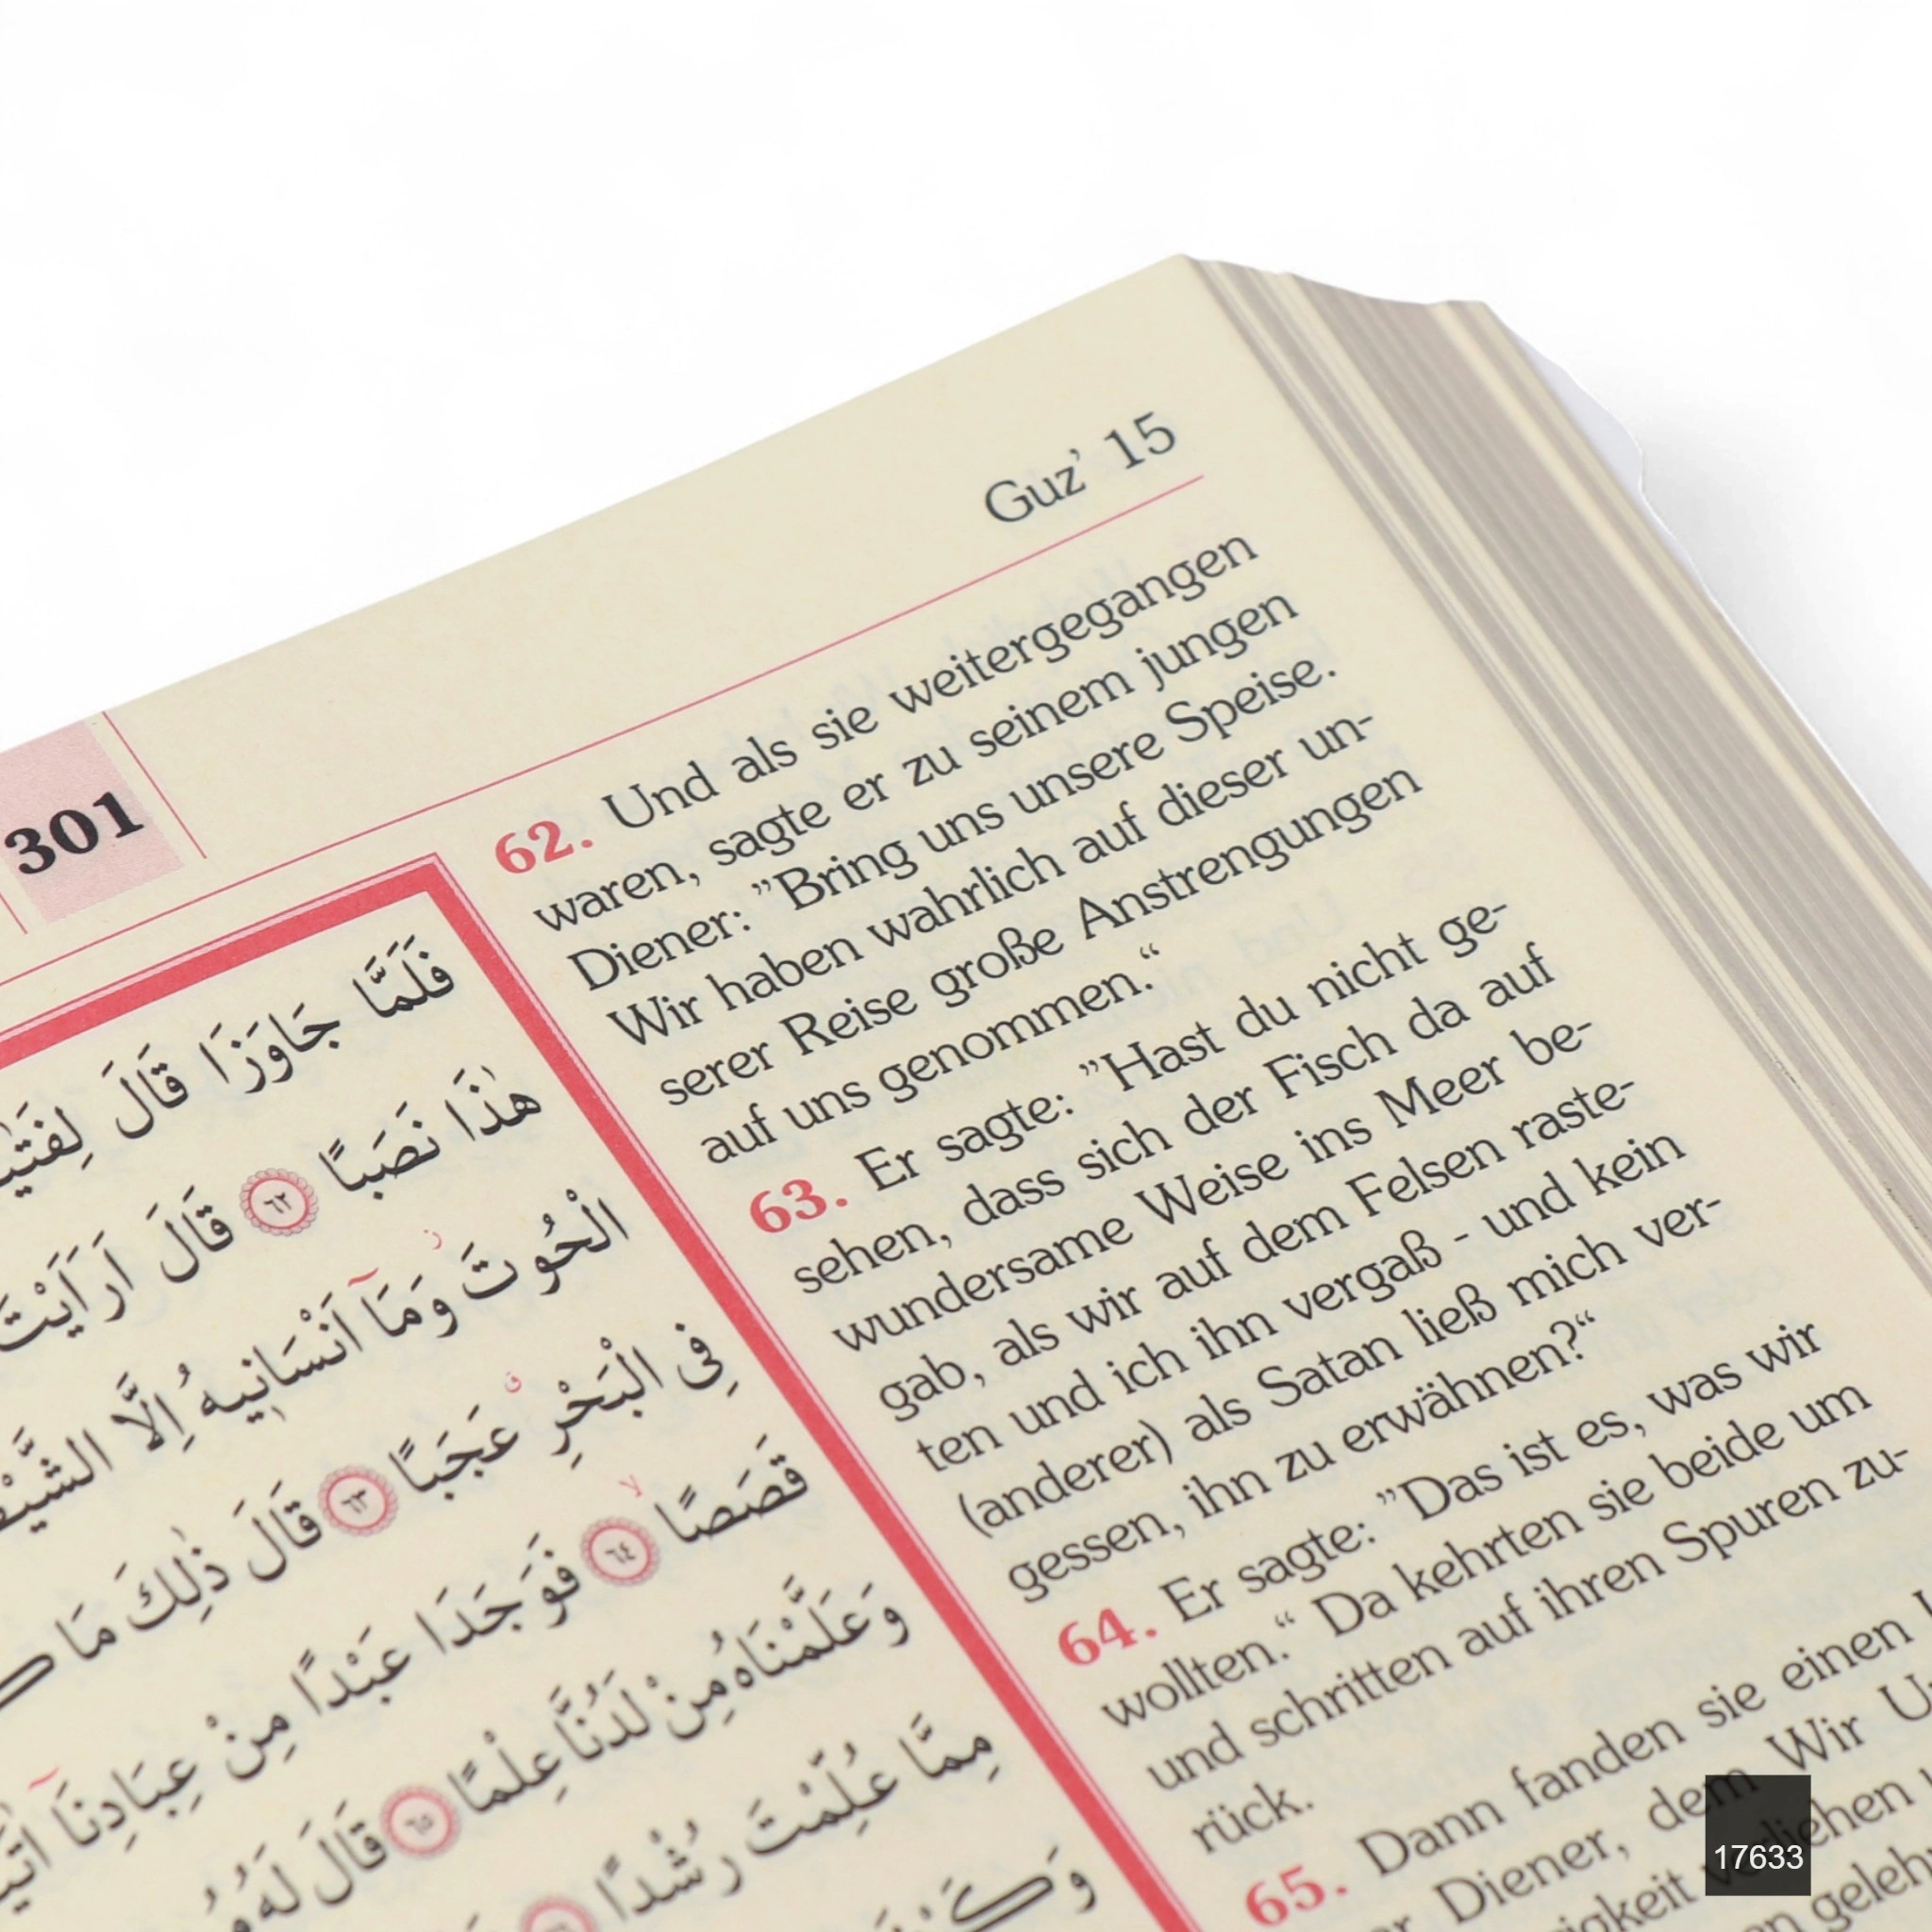 301
Guz’ 15
62. Und als sie weitergegangen
waren, sagte er zu seinem jungen
Diener: ”Bring uns unsere Speise.
Wir haben wahrlich auf dieser un-
serer Reise große Anstrengungen
auf uns genommen.“
63. Er sagte: ”Hast du nicht ge-
sehen, dass sich der Fisch da auf
wundersame Weise ins Meer be-
gab, als wir auf dem Felsen raste-
ten und ich ihn vergaß - und kein
(anderer) als Satan ließ mich ver-
gessen, ihn zu erwähnen?“
64. Er sagte: ”Das ist es, was wir
wollten.“ Da kehrten sie beide um
und schritten auf ihren Spuren zu-
rück.
65. Dann fanden sie einen
Diener, dem Wir
فَلَمَّا جَاوَزَا قَالَ
هٰذَا نَصَبًا ٦٢ قَالَ اَرَاَيْتَ
الْحُوتَ وَمَٓا اَنْسَان۪يهُ اِلَّا
فِى الْبَحْرِ عَجَبًا ٦٣ قَالَ ذٰلِكَ مَا
قَصَصًا ٦٤ فَوَجَدَا عَبْدًا مِنْ عِبَادِنَٓا
وَعَلَّمْنَاهُ مِنْ لَدُنَّا عِلْمًا ٦٥ قَالَ لَهُ
مِمَّا عُلِّمْتَ رُشْدًا
17633